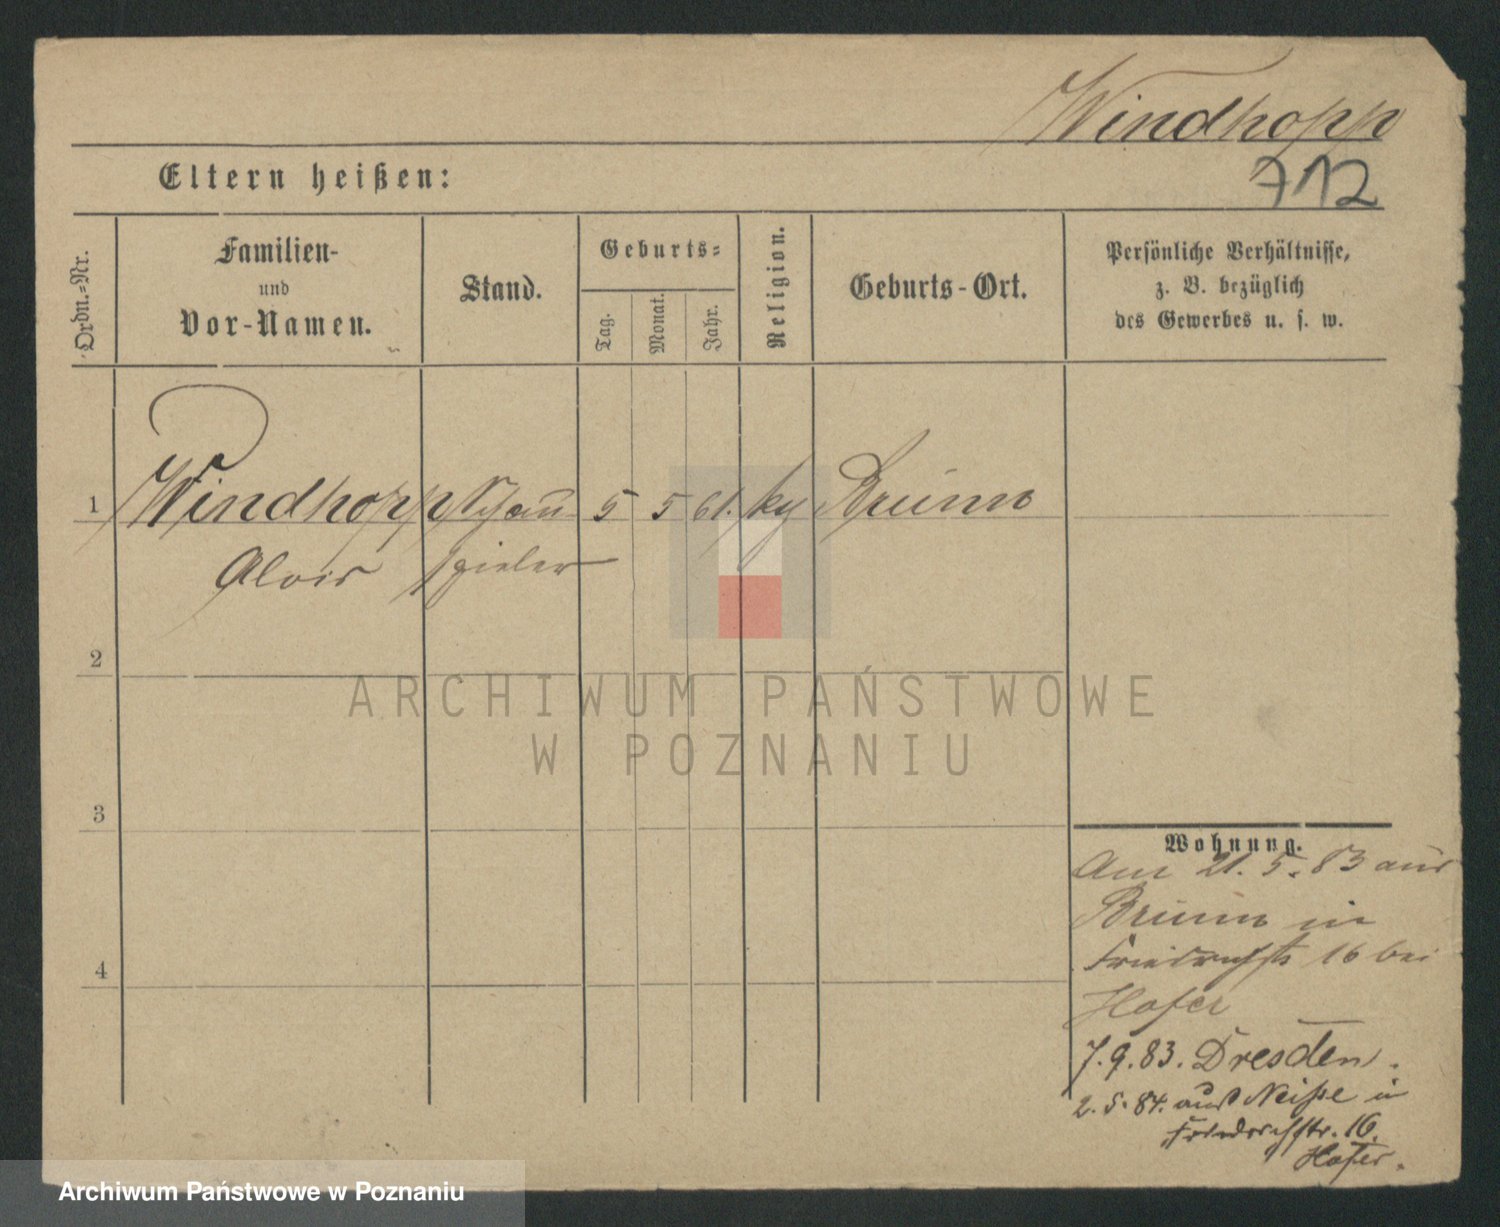 Windhopp
712
Eltern heißen:
Ordn.-Nr.
Familien-
und
Vor-Namen.
Stand.
Geburts-
Tag.
Monat.
Jahr.
Religion.
Geburts-Ort.
Persönliche Verhältnisse,
z. B. bezüglich
des Gewerbes u. s. w.
1 Windhopp Schau 5 5 61. kg Brünn
Alois spieler
2
3
4
ARCHIWUM PAŃSTWOWE
W POZNANIU
Wohnung.
Am 21. 5. 83 aus
Brünn in
Friedrichstr 16 bei
Hofer
7. 9. 83. Dresden.
2. 5. 84. aus Neiße in
Friedrichstr. 16.
Hofer.
Archiwum Państwowe w Poznaniu